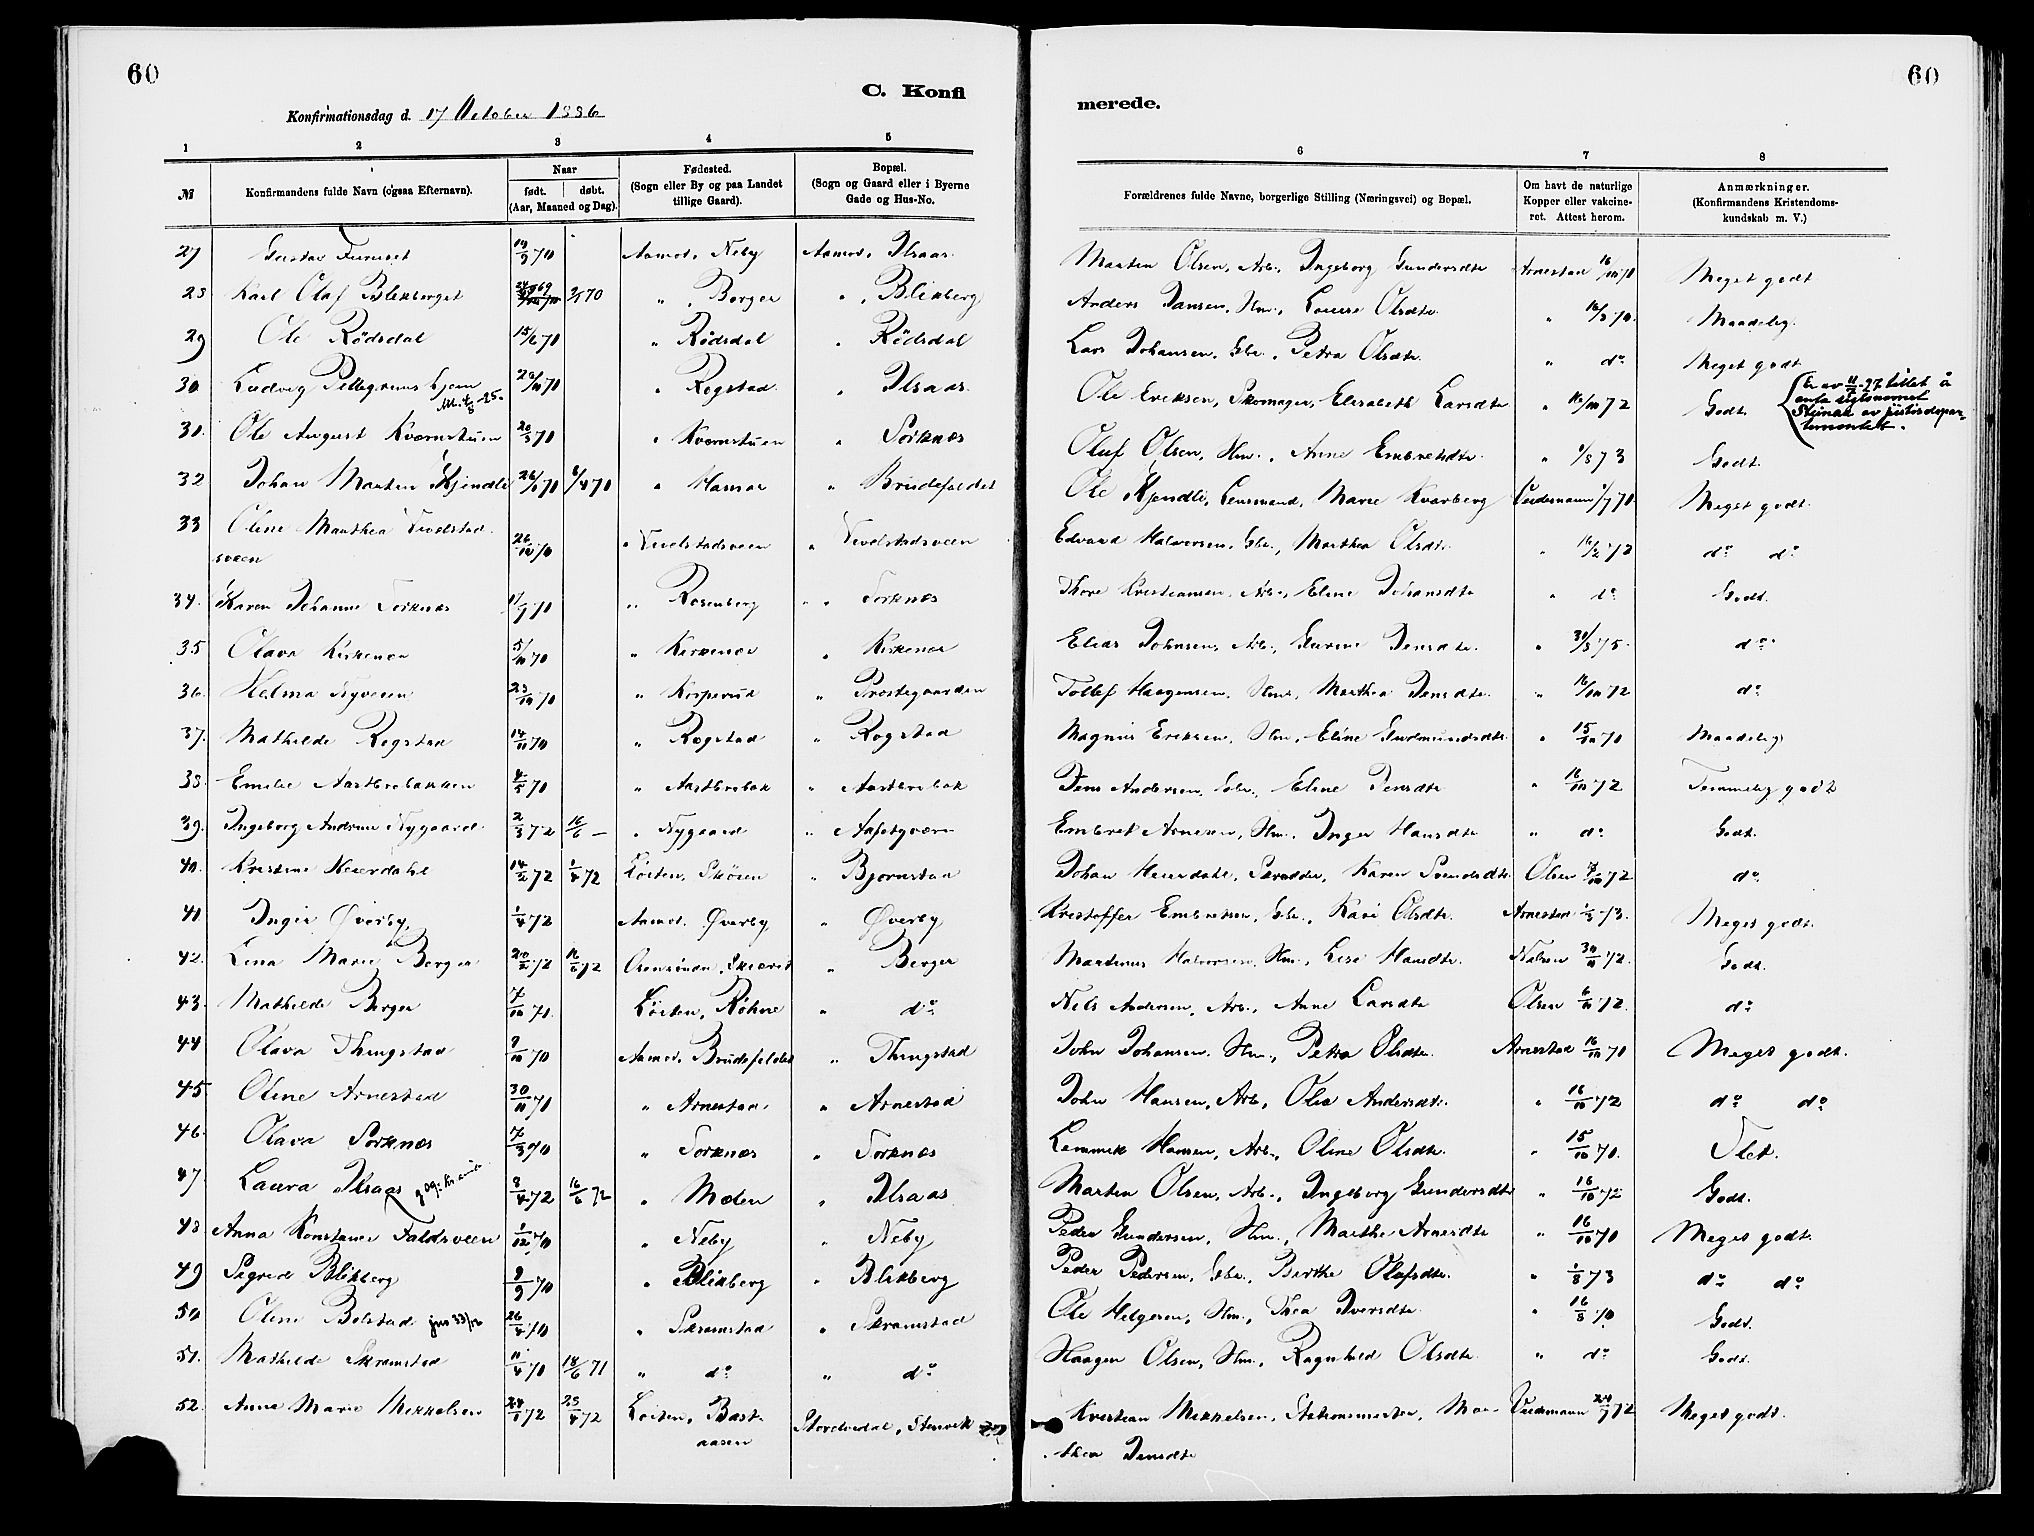 60
C. Konfi
Konfirmationsdag d. 17 October 1886
1 2 3 4 5
№
Konfirmandens fulde Navn (ogsaa Efternavn).
Naar
født. døbt.
(Aar, Maaned og Dag).
Fødested.
(Sogn eller By og paa Landet
tillige Gaard).
Bopæl.
(Sogn og Gaard eller i Byerne
Gade og Hus-No.
27 Gustav Furuset 19/9 70 Aamot, Neby Aamot, Ilsaas.
28 Karl Olaf Blikberget 2/1 70 " , Berger " , Blikberg
29 Ole Rødsdal 15/6 70 " Rødsdal " Rødsdal
30 Ludvig Pellegrinus 70 " Rogstad " Ilsaas
31. Ole August Kværnstuen 20/3 70 " Kværnstuen " Sorknæs
32 Johan Marten Kjendli 26/1 70 6/4 70 " Hamar " Brudefaldet
33 Oline Marthea Tvedstad
sveen 26/10 70 " Tvedstadsveen " Tvedstadsveen
34. Karen Johanne Sorknæs 17/9 70 " Rosenberg " " Sorknæs
35 Olava Kirkenær 5/10 70 " Kirkenær " Kirkenær
36. Helma Nyveien 23/10 70 " " Præstegaarden
37. Mathilde Rogstad 14/11 70 " Rogstad " Rogstad
38. Emilie Aastbrobakken 4/5 70 " Aastbrobak " Aastbrobak
39. Ingeborg Andrine Nygaard 2/3 72 16/6 – " Nygaard "
40. Kristine Heierdahl 14/2 72 1/4 72 Løiten, Skøien " Bjørnstad
41. Inger Øverby 1/4 72 Aamot. Øverby " Øverby
42. Lina Marie Berger 20/2 72 16/6 72 " Berger
43. Mathilde Berger 7/10 70. Løiten, Røhne " do
44 Olava Thingstad 9/10 70 Aamot. Brudefaldet " Thingstad
45 Oline Arnestad 30/11 70 " Arnestad. " Arnestad
46. Olava Sorknæs 7/3 70 " Sorknæs " Sorknæs
47. Laura Ilsaas 8/4 72 16/6 72 " Moten " Ilsaas
48 Anna Konstanse Faldsveen 1/12 70 " Neby " Neby
49 Sigrid Blikberg 9/9 70 " Blikberg " Blikberg
50 Oline Bolstad 26/4 70 " Skramstad " Skramstad
51. Mathilde Skramstad 11/4 70 18/6 71 " do " do
52. Anne Marie Mikkelsen 24/1 72 25/4 72 Løiten, Bast-
aasen Storelvedal, Stenvik
60
merede.
6 7 8
Forældrenes fulde Navne, borgerlige Stilling (Næringsvei) og Bopæl.
Om havt de naturlige
Kopper eller vakcine-
ret. Attest herom.
Anmærkninger.
(Konfirmandens Kristendoms-
kundskab m. V.)
Marten Olsen, Arb., Ingeborg Gundersdtr Arnestad 16/10 70 Meget godt
Anders Jansen, Hm., Louise Olsdtr. " 16/8 70. Maadelig.
Lars Johansen, Gbr., Petra Olsdtr. " do Meget godt
Ole Eriksen, Skomager, Elisabeth Larsdtr " 16/10 72 Godt.
Er av 11/2-27 tillatt å
anta slektsnavnet
av justisdepar-
tementet.
Oluf Olsen, Hm., Anne Embretsdtr. " 1/8 73 Godt.
Ole Kjendli, Lensmand, Marie Kvarberg Veidemann 1/7 70 Meget godt.
Edvard Halvorsen, Gbr., Marthea Olsdtr. " 16/2 72 do do
Thore Kristiansen, Arb., Eline Johansdtr " do Godt.
Elias Johnsen, Arb., Gurine Jensdtr. " 30/8 75. do
Tollef Haagensen, Hm., Marthea Jensdtr. " 16/10 72 do
Magnus Eriksen, Hm., Eline Gudmundsdtr. " 15/10 70 Maadelig
Jens Andersen, Gbr., Eline Jensdtr " 16/10 72 Temmelig godt
Embret Arnesen, Hm., Inger Hansdtr " do Godt.
Johan Heierdahl, Skrædder, Karen Svendsdtr Olsen 72 do.
Kristoffer Embretsen, Gbr., Kari Olsdtr. Arnestad 1/8 73. Meget godt.
Martinus Halvorsen, Hm., Lise Hansdtr. 30/11 72. Godt.
Nils Andersen, Arb., Anne Larsdtr Olsen 6/11 72. do
John Johansen, Hm., Petra Olsdtr. Arnestad 16/10 70 Meget godt.
John Hansen, Arb., Olea Andersdtr. " 16/10 72 do do
Lennik Hansen, Arb., Oline Olsdtr. " 15/10 70. Slet.
Marten Olsen, Arb., Ingeborg Gundersdtr " 16/10 72 Godt.
Peder Gundersen, Hm., Marthe Arnesdtr " 16/10 70 Meget godt.
Peder Pedersen, Gbr., Berthe Olafsdtr. " 1/8 73 do do
Ole Helgesen, Hm., Thea Iversdtr. " 16/8 70 Godt.
Haagen Olsen, Hm., Ragnhild Olsdtr. " do Godt.
Kristian Mikkelsen, Stationsmester, Mar- Veidemann 24/7 72 Meget godt.
thea Jensdtr